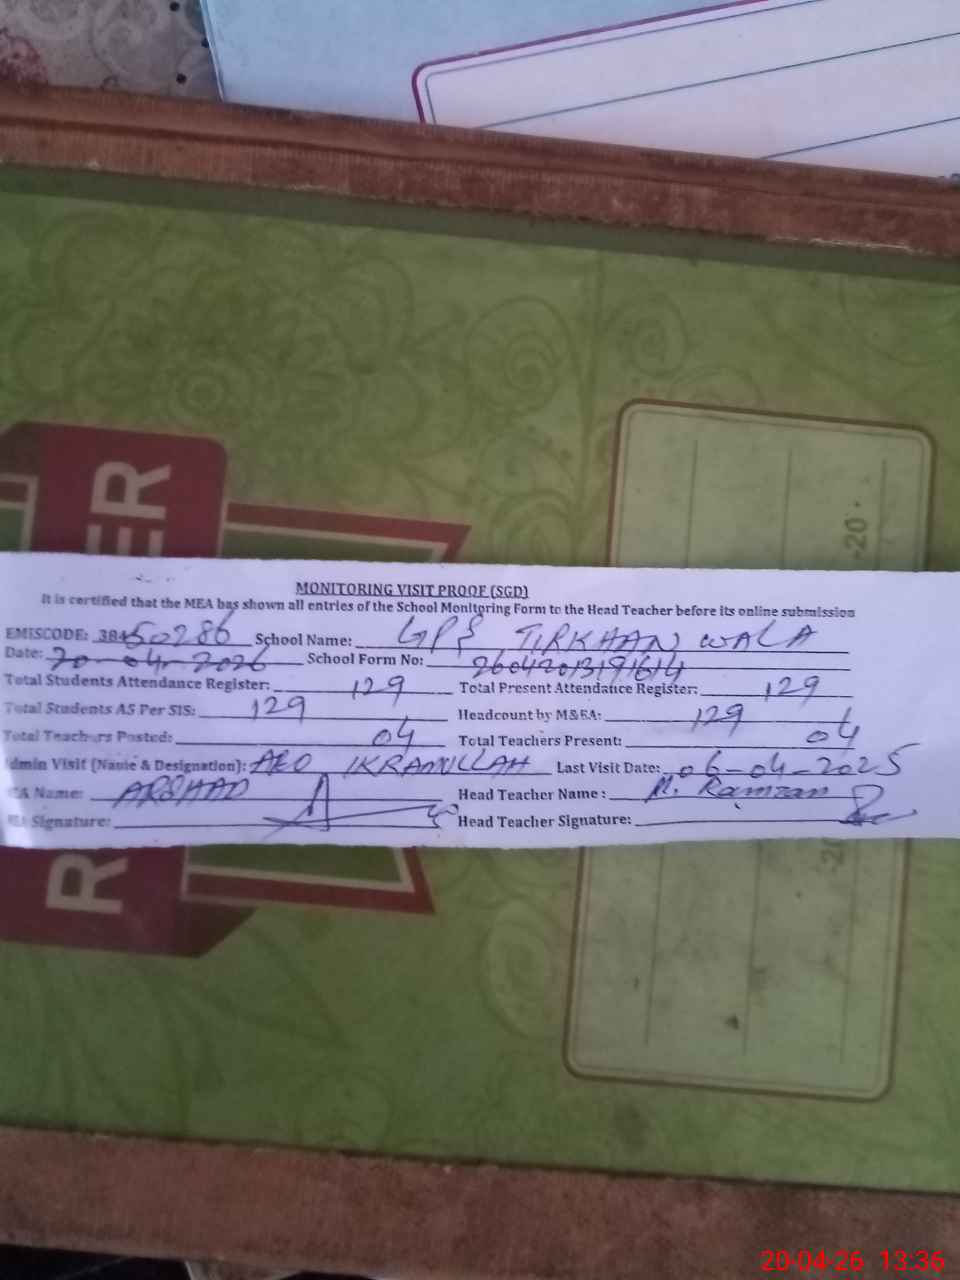 MONITORING VISIT PROOF (SGD)
It is certified that the MEA has shown all entries of the School Monitoring Form to the Head Teacher before its online submission
EMISCODE: 38450286 School Name: GPS TIRKHAAN WALA
Date: 20-04-2026 School Form No: 26042013191614
Total Students Attendance Register: 129 Total Present Attendance Register: 129
Total Students AS Per SIS: 129 Headcount by M&EA: 129
Total Teachers Posted: 04 Total Teachers Present: 04
dmin Visit (Name & Designation): AEO IKRAMULLAH Last Visit Date: 06-04-2025
EA Name: ARSHAD Head Teacher Name: M. Ramzan
Signature: Head Teacher Signature:
ER
R
-20
-20
20-04-26 13:36